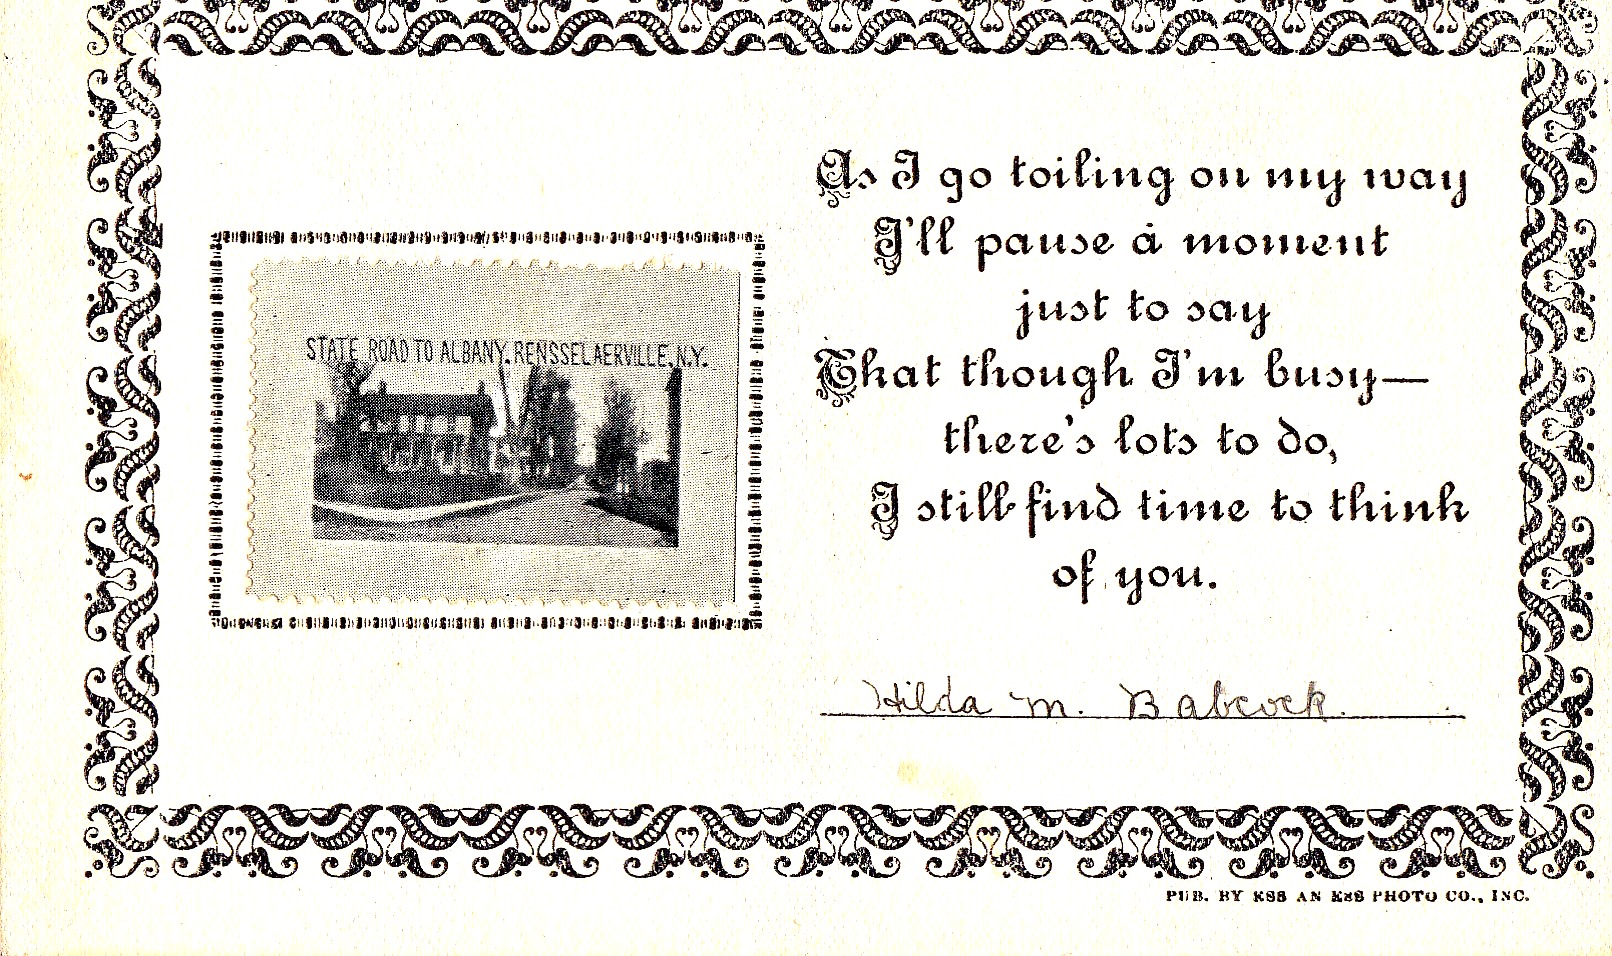 STATE ROAD TO ALBANY. RENSSELAERVILLE, N.Y.
As I go toiling on my way
I'll pause a moment
just to say
That though I'm busy—
there's lots to do,
I still find time to think
of you.
Hilda M. Babcock.
PUB. BY KSS AN KSS PHOTO CO., INC.